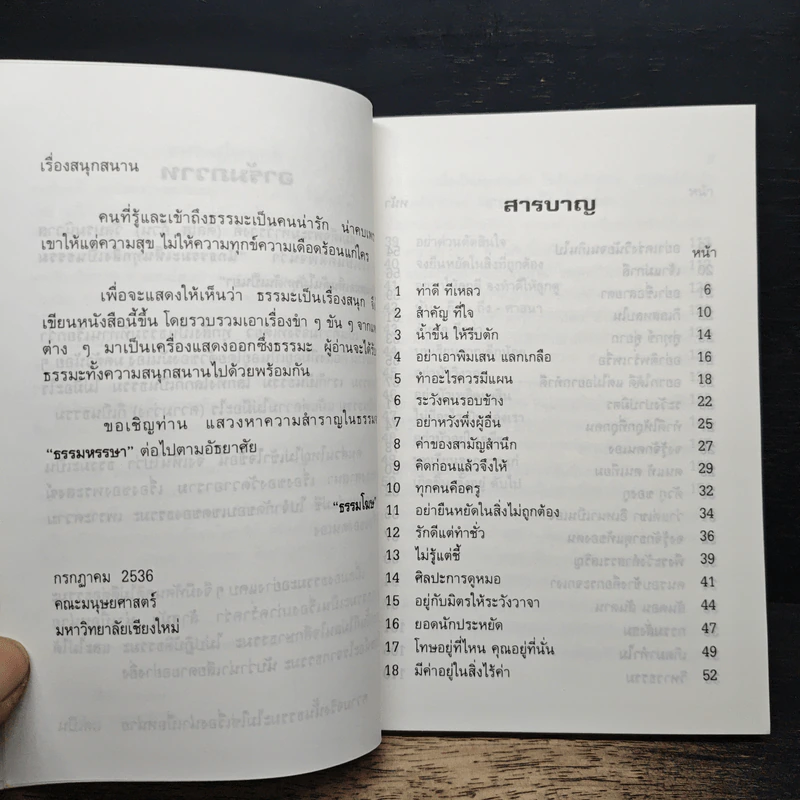 เรื่องสนุกสนาน
คนที่รู้และเข้าถึงธรรมะเป็นคนน่ารัก น่าคบเพ
เขาให้แต่ความสุข ไม่ให้ความทุกข์ความเดือดร้อนแก่ใคร
เพื่อจะแสดงให้เห็นว่า ธรรมะเป็นเรื่องสนุก
เขียนหนังสือนี้ขึ้น โดยรวบรวมเอาเรื่องขำ ๆ ขัน ๆ จาก
ต่าง ๆ มาเป็นเครื่องแสดงออกซึ่งธรรมะ ผู้อ่านจะได้
ธรรมะทั้งความสนุกสนานไปด้วยพร้อมกัน
ขอเชิญท่าน แสวงหาความสำราญในธรรม
“ธรรมหรรษา” ต่อไปตามอัธยาศัย
“ธรรมโฆษ”
กรกฎาคม 2536
คณะมนุษยศาสตร์
มหาวิทยาลัยเชียงใหม่
สารบาญ
หน้า
1 ท่าดี ทีเหลว 6
2 สำคัญ ที่ใจ 10
3 น้ำขึ้น ให้รีบตัก 14
4 อย่าเอาพิมเสน แลกเกลือ 16
5 ทำอะไรควรมีแผน 18
6 ระวังคนรอบข้าง 22
7 อย่าหวังพึ่งผู้อื่น 25
8 ค่าของสามัญสำนึก 27
9 คิดก่อนแล้วจึงให้ 29
10 ทุกคนคือครู 32
11 อย่ายืนหยัดในสิ่งไม่ถูกต้อง 34
12 รักดีแต่ทำชั่ว 36
13 ไม่รู้แต่ชี้ 39
14 ศิลปะการดูหมอ 41
15 อยู่กับมิตรให้ระวังวาจา 44
16 ยอดนักประหยัด 47
17 โทษอยู่ที่ไหน คุณอยู่ที่นั่น 49
18 มีค่าอยู่ในสิ่งไร้ค่า 52